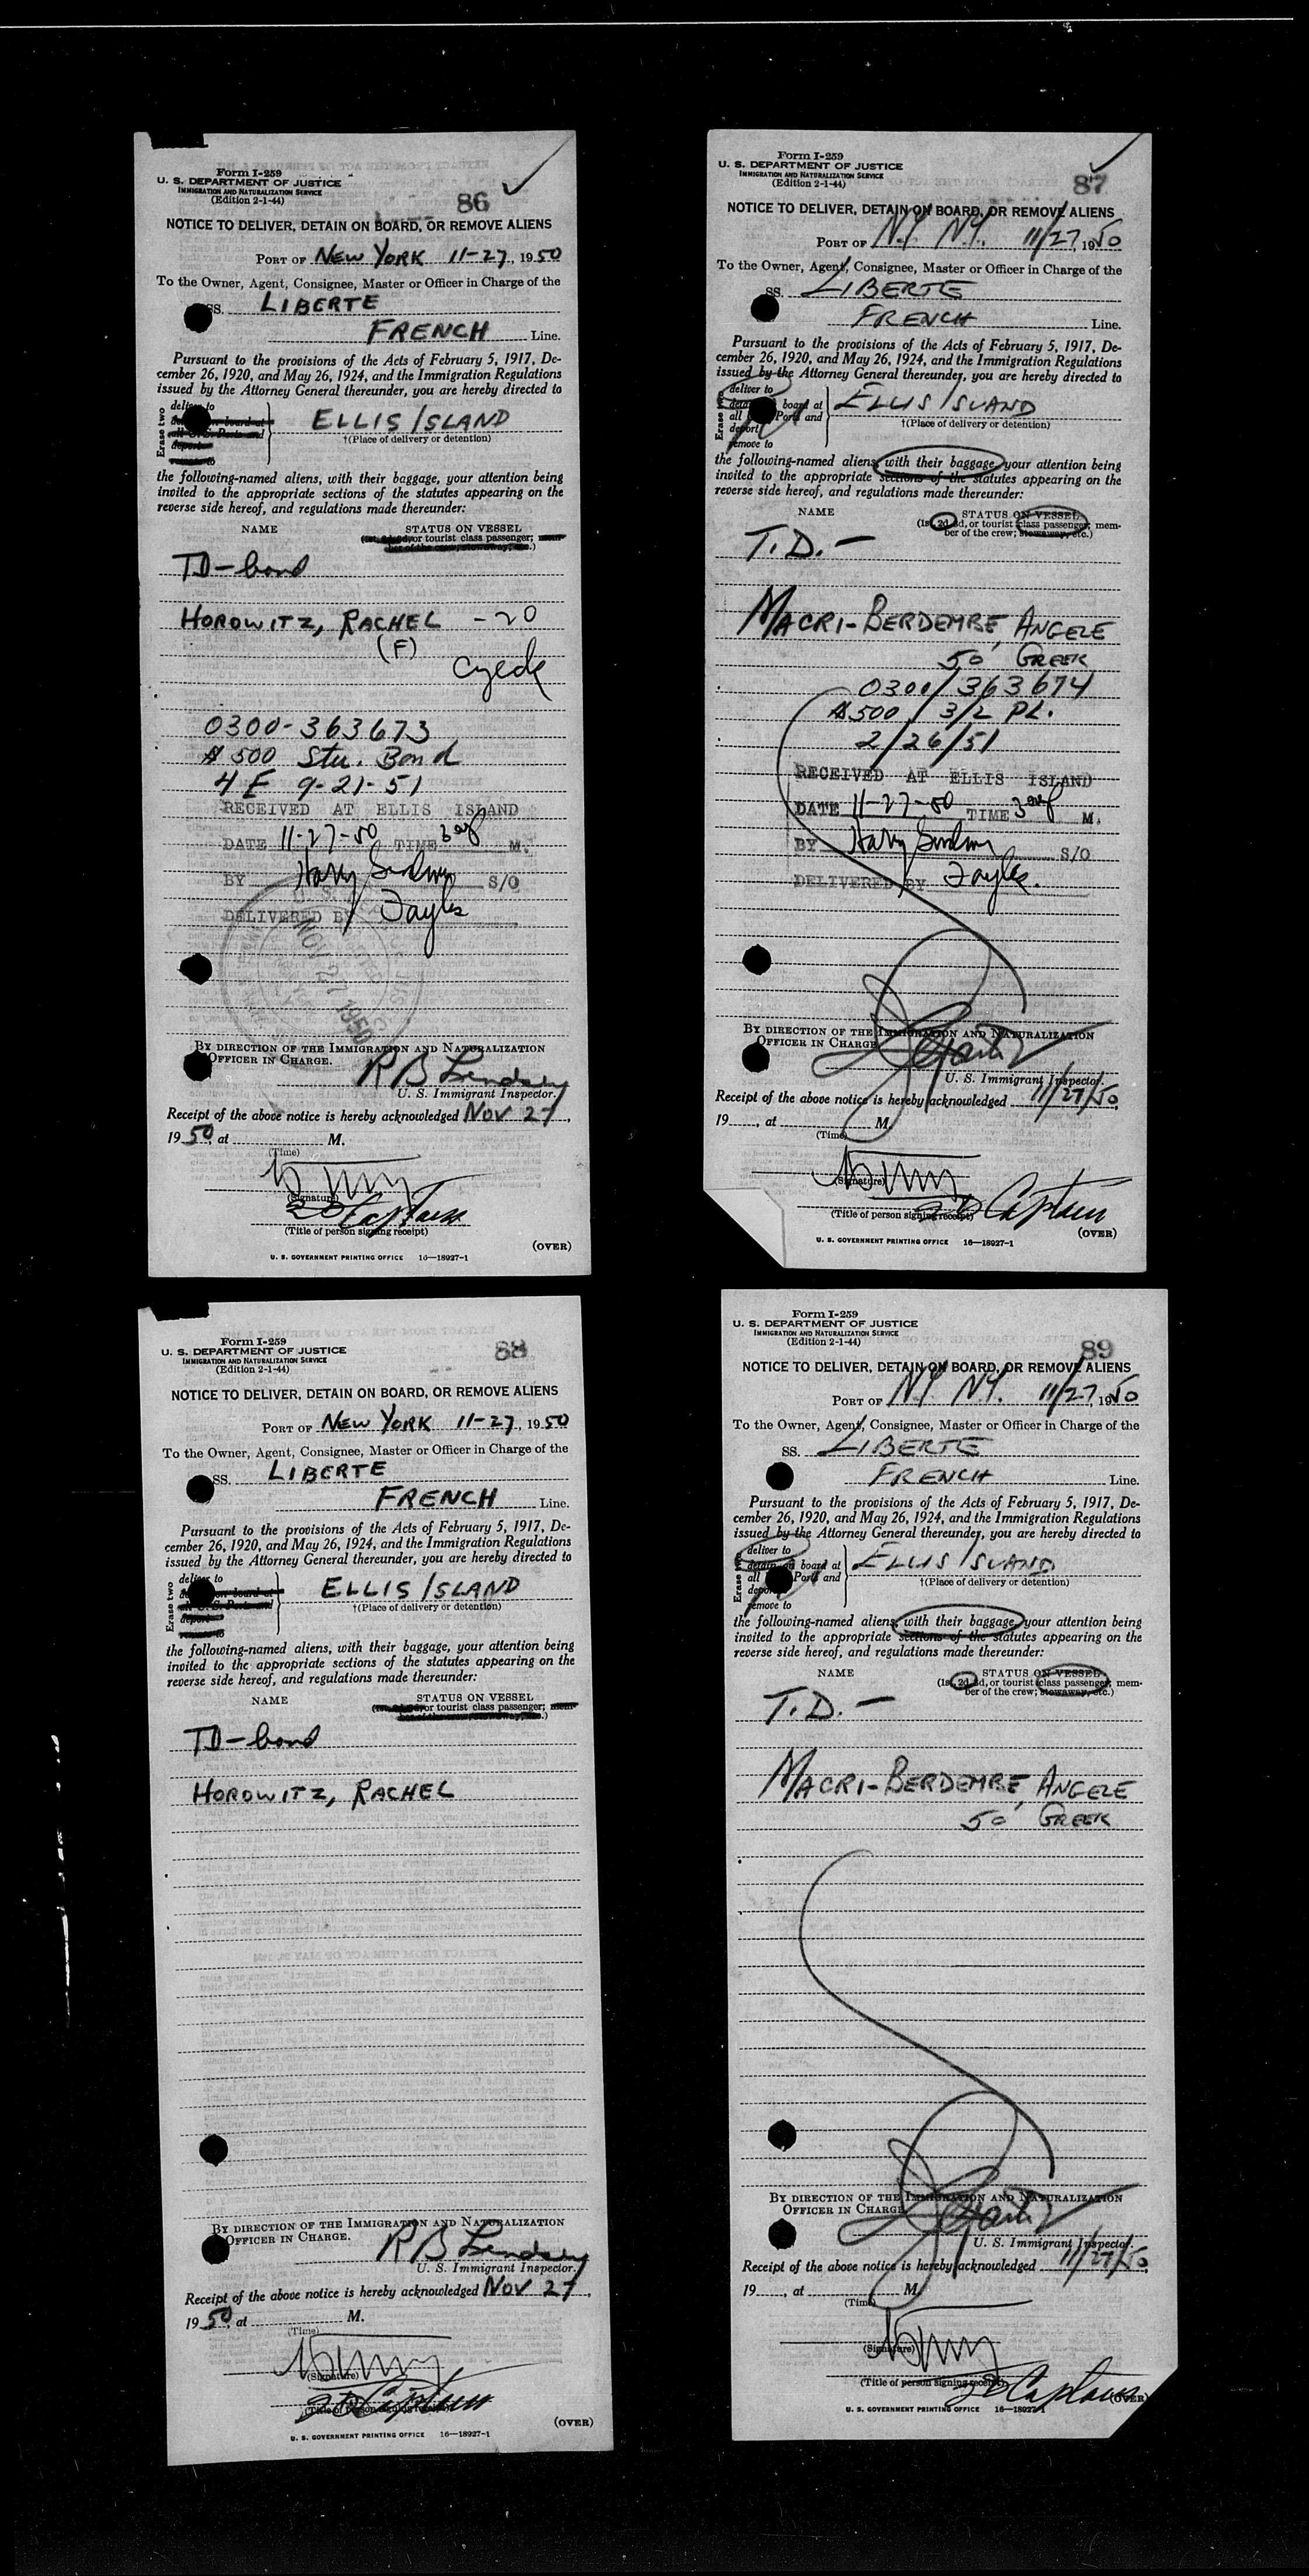 Form I-259
U. S. DEPARTMENT OF JUSTICE
IMMIGRATION AND NATURALIZATION SERVICE
(Edition 2-1-44)
86
NOTICE TO DELIVER, DETAIN ON BOARD, OR REMOVE ALIENS
PORT OF NEW YORK 11-27, 1950
To the Owner, Agent, Consignee, Master or Officer in Charge of the
SS. LIBERTE
FRENCH Line.
Pursuant to the provisions of the Acts of February 5, 1917, De-
cember 26, 1920, and May 26, 1924, and the Immigration Regulations
issued by the Attorney General thereunder, you are hereby directed to
Erase two
deliver to
on board at
all U. S. Ports and
deport
remove to
ELLIS ISLAND
†(Place of delivery or detention)
the following-named aliens, with their baggage, your attention being
invited to the appropriate sections of the statutes appearing on the
reverse side hereof, and regulations made thereunder:
NAME STATUS ON VESSEL
or tourist class passenger; mem-
ber of the crew; stowaway, etc.)
TD-bond
HOROWITZ, RACHEL - 20
(F)
0300-363673
$500 Stu. Bond
4 F 9-21-51
RECEIVED AT ELLIS ISLAND
DATE 11-27-50 TIME M.
BY Harry S/O
DELIVERED BY
NOV 27 1950
BY DIRECTION OF THE IMMIGRATION AND NATURALIZATION
OFFICER IN CHARGE.
R B Lendsey
U. S. Immigrant Inspector.
Receipt of the above notice is hereby acknowledged NOV 27,
1950, at M.
(Time)
(Signature)
2D Captain
(Title of person signing receipt)
(OVER)
U. S. GOVERNMENT PRINTING OFFICE 16—18927-1
Form I-259
U. S. DEPARTMENT OF JUSTICE
IMMIGRATION AND NATURALIZATION SERVICE
(Edition 2-1-44)
87
NOTICE TO DELIVER, DETAIN ON BOARD, OR REMOVE ALIENS
PORT OF N.Y. N.Y. 11/27, 1950
To the Owner, Agent, Consignee, Master or Officer in Charge of the
SS. LIBERTE
FRENCH Line.
Pursuant to the provisions of the Acts of February 5, 1917, De-
cember 26, 1920, and May 26, 1924, and the Immigration Regulations
issued by the Attorney General thereunder, you are hereby directed to
Erase two
deliver to
detain on board at
all Ports and
deport
remove to
ELLIS ISLAND
†(Place of delivery or detention)
the following-named aliens, with their baggage, your attention being
invited to the appropriate sections of the statutes appearing on the
reverse side hereof, and regulations made thereunder:
NAME STATUS ON VESSEL
(1st, 2d, 3d, or tourist class passenger; mem-
ber of the crew; stowaway, etc.)
T.D. —
MACRI-BERDEMBE, ANGELE
50 GREEK
0300/363674
$500 / 3/2 PL.
2/26/51
RECEIVED AT ELLIS ISLAND
DATE 11-27-50 TIME M.
BY Harry S/O
DELIVERED BY
BY DIRECTION OF THE IMMIGRATION AND NATURALIZATION
OFFICER IN CHARGE.
U. S. Immigrant Inspector.
Receipt of the above notice is hereby acknowledged 11/27/50,
19 , at M.
(Time)
(Signature)
2D Captain
(Title of person signing receipt)
(OVER)
U. S. GOVERNMENT PRINTING OFFICE 16—18927-1
Form I-259
U. S. DEPARTMENT OF JUSTICE
IMMIGRATION AND NATURALIZATION SERVICE
(Edition 2-1-44)
88
NOTICE TO DELIVER, DETAIN ON BOARD, OR REMOVE ALIENS
PORT OF NEW YORK 11-27, 1950
To the Owner, Agent, Consignee, Master or Officer in Charge of the
SS. LIBERTE
FRENCH Line.
Pursuant to the provisions of the Acts of February 5, 1917, De-
cember 26, 1920, and May 26, 1924, and the Immigration Regulations
issued by the Attorney General thereunder, you are hereby directed to
Erase two
deliver to
on board at
all U. S. Ports and
deport
remove to
ELLIS ISLAND
†(Place of delivery or detention)
the following-named aliens, with their baggage, your attention being
invited to the appropriate sections of the statutes appearing on the
reverse side hereof, and regulations made thereunder:
NAME STATUS ON VESSEL
or tourist class passenger; mem-
ber of the crew; stowaway, etc.)
TD-bond
HOROWITZ, RACHEL
BY DIRECTION OF THE IMMIGRATION AND NATURALIZATION
OFFICER IN CHARGE.
R B Lendsey
U. S. Immigrant Inspector.
Receipt of the above notice is hereby acknowledged NOV 27,
1950, at M.
(Time)
(Signature)
2D Captain
(Title of person signing receipt)
(OVER)
U. S. GOVERNMENT PRINTING OFFICE 16—18927-1
Form I-259
U. S. DEPARTMENT OF JUSTICE
IMMIGRATION AND NATURALIZATION SERVICE
(Edition 2-1-44)
89
NOTICE TO DELIVER, DETAIN ON BOARD, OR REMOVE ALIENS
PORT OF N.Y. N.Y. 11/27, 1950
To the Owner, Agent, Consignee, Master or Officer in Charge of the
SS. LIBERTE
FRENCH Line.
Pursuant to the provisions of the Acts of February 5, 1917, De-
cember 26, 1920, and May 26, 1924, and the Immigration Regulations
issued by the Attorney General thereunder, you are hereby directed to
Erase two
deliver to
detain on board at
all Ports and
deport
remove to
ELLIS ISLAND
†(Place of delivery or detention)
the following-named aliens, with their baggage, your attention being
invited to the appropriate sections of the statutes appearing on the
reverse side hereof, and regulations made thereunder:
NAME STATUS ON VESSEL
(1st, 2d, 3d, or tourist class passenger; mem-
ber of the crew; stowaway, etc.)
T.D. —
MACRI-BERDEMBE, ANGELE
50 GREEK
BY DIRECTION OF THE IMMIGRATION AND NATURALIZATION
OFFICER IN CHARGE
U. S. Immigrant Inspector.
Receipt of the above notice is hereby acknowledged 11/27/50,
19 , at M.
(Time)
(Signature)
2D Captain
(Title of person signing receipt)
(OVER)
U. S. GOVERNMENT PRINTING OFFICE 16—18927-1